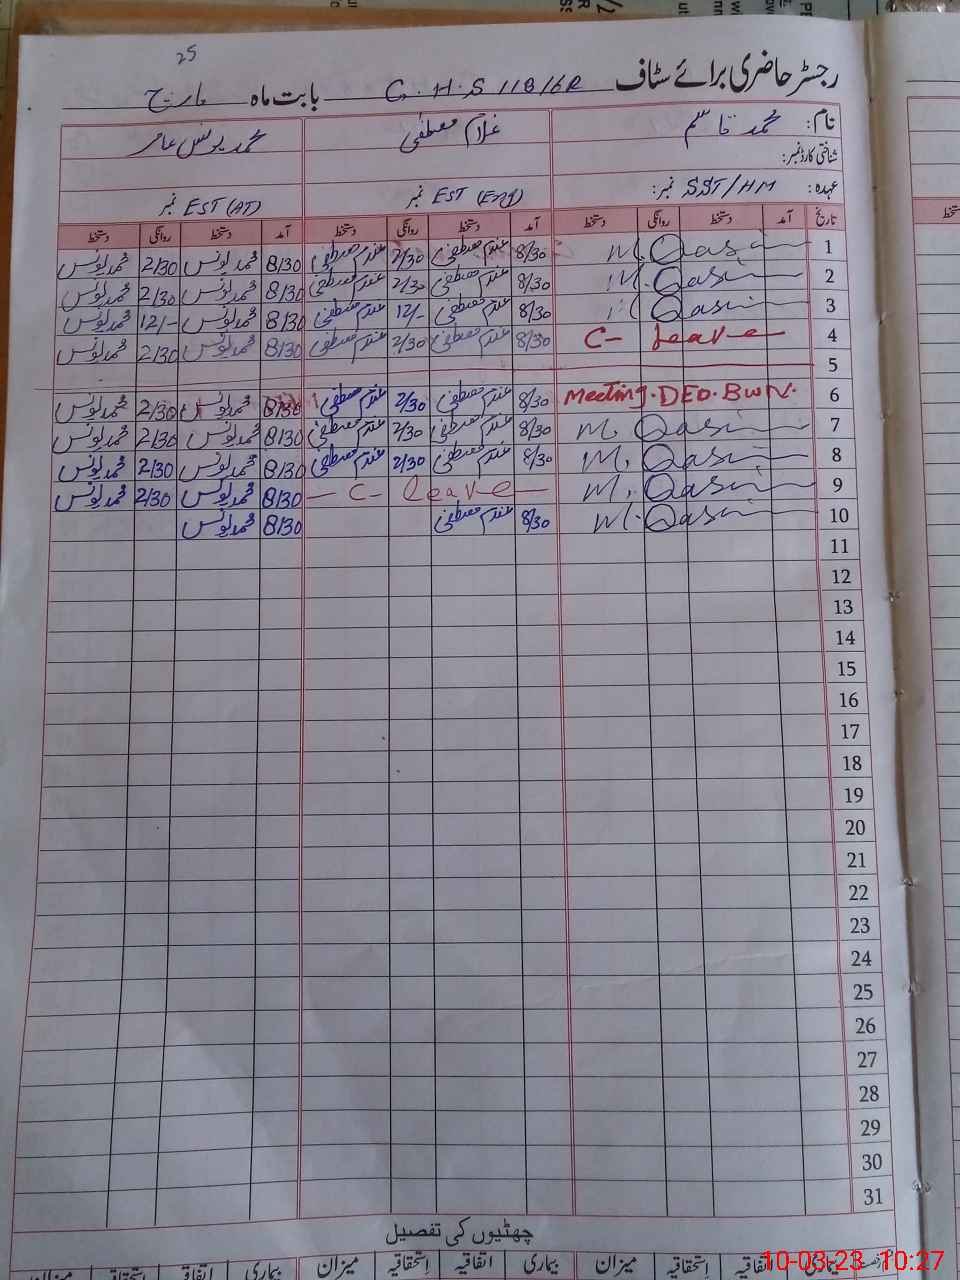 25
رجسٹر حاضری برائے سٹاف G.H.S 118/6R بابت ماہ مارچ
نام: محمد قاسم غلام مصطفی محمد یونس عامر
شناختی کارڈ نمبر:
عہدہ: SST/HM نمبر: EST (Eng) نمبر EST (AT) نمبر
تاریخ آمد دستخط روانگی دستخط آمد دستخط روانگی دستخط آمد دستخط روانگی دستخط
1 M. Qasim 8/30 غلام مصطفی 2/30 غلام مصطفی 8/30 محمد یونس 2/30 محمد یونس
2 M. Qasim 8/30 غلام مصطفی 2/30 غلام مصطفی 8/30 محمد یونس 2/30 محمد یونس
3 M. Qasim 8/30 غلام مصطفی 12/- غلام مصطفی 8/30 محمد یونس 12/- محمد یونس
4 C- Leave 8/30 غلام مصطفی 2/30 غلام مصطفی 8/30 محمد یونس 2/30 محمد یونس
5
6 Meeting. DEO. BWN. 8/30 غلام مصطفی 2/30 غلام مصطفی 8/30 محمد یونس 2/30 محمد یونس
7 M. Qasim 8/30 غلام مصطفی 2/30 غلام مصطفی 8/30 محمد یونس 2/30 محمد یونس
8 M. Qasim 8/30 غلام مصطفی 2/30 غلام مصطفی 8/30 محمد یونس 2/30 محمد یونس
9 M. Qasim — C- leave — 8/30 محمد یونس 2/30 محمد یونس
10 M. Qasim 8/30 غلام مصطفی 8/30 محمد یونس
11
12
13
14
15
16
17
18
19
20
21
22
23
24
25
26
27
28
29
30
31
چھٹیوں کی تفصیل
بیماری اتفاقیہ استحقاقیہ میزان بیماری اتفاقیہ استحقاقیہ میزان بیماری اتفاقیہ استحقاقیہ میزان
10-03-23 10:27